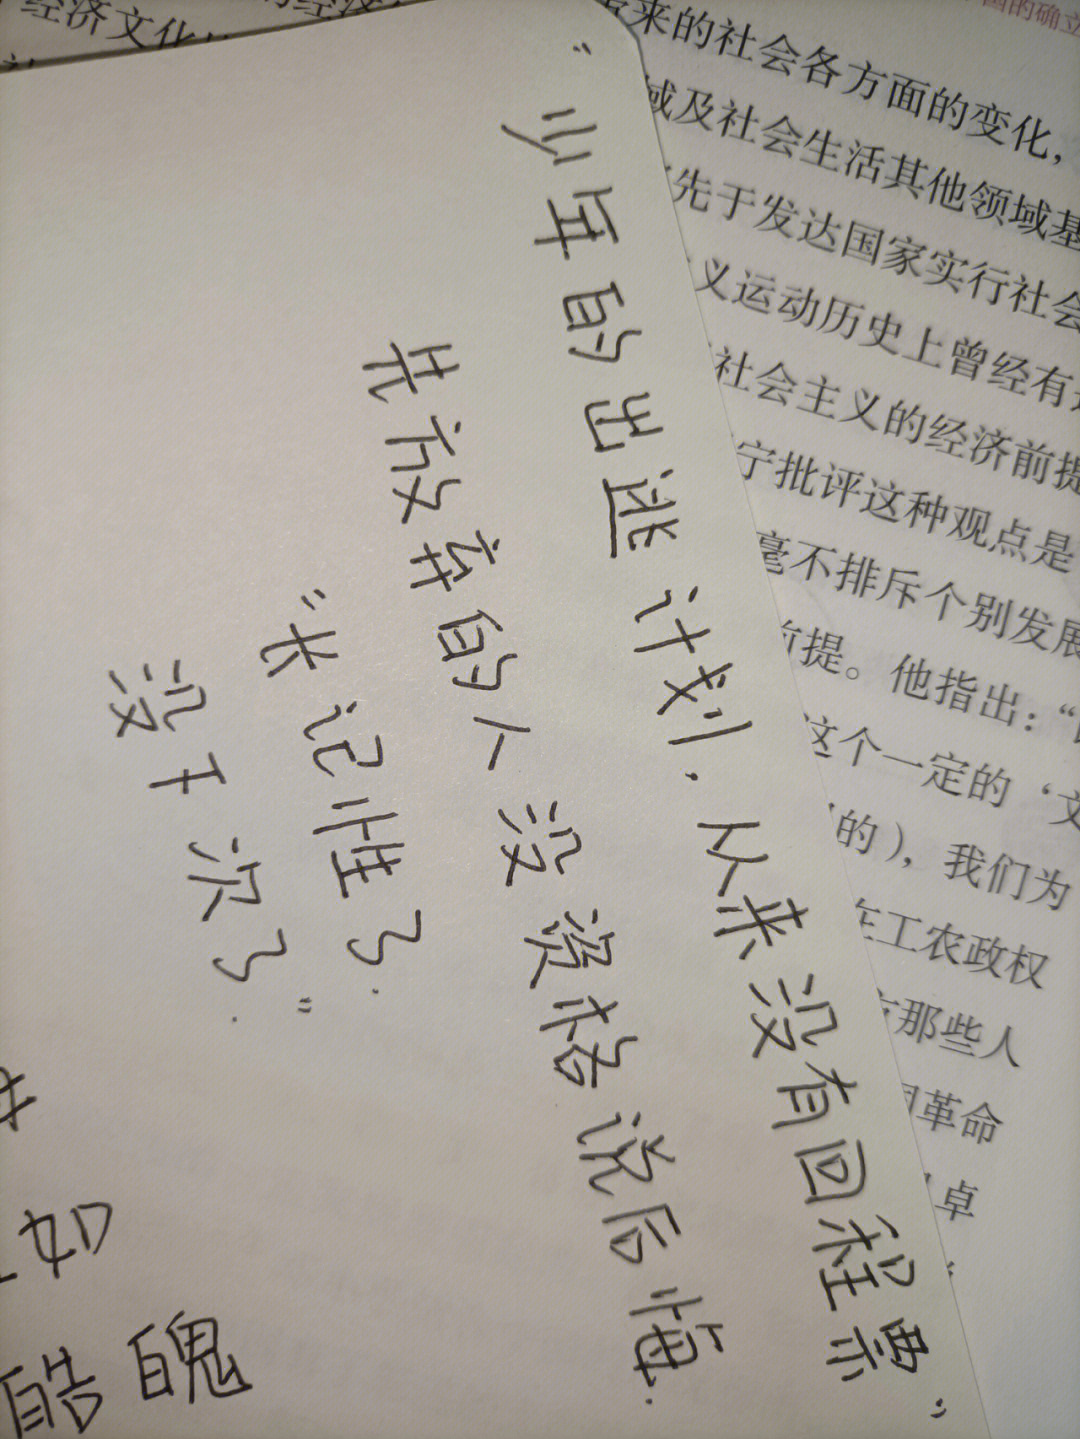 “少年的出逃计划，从来没有回程票”
先放弃的人没资格说后悔.
“长记性了.
没下次了.”
如
酷
魄
经济文化
来的社会各方面的变化，
域及社会生活其他领域基
先于发达国家实行社会
义运动历史上曾经有
社会主义的经济前提
宁批评这种观点是
毫不排斥个别发展
前提。他指出：“
这个一定的‘文
的），我们为
在工农政权
那些人
革命
卓
的确立